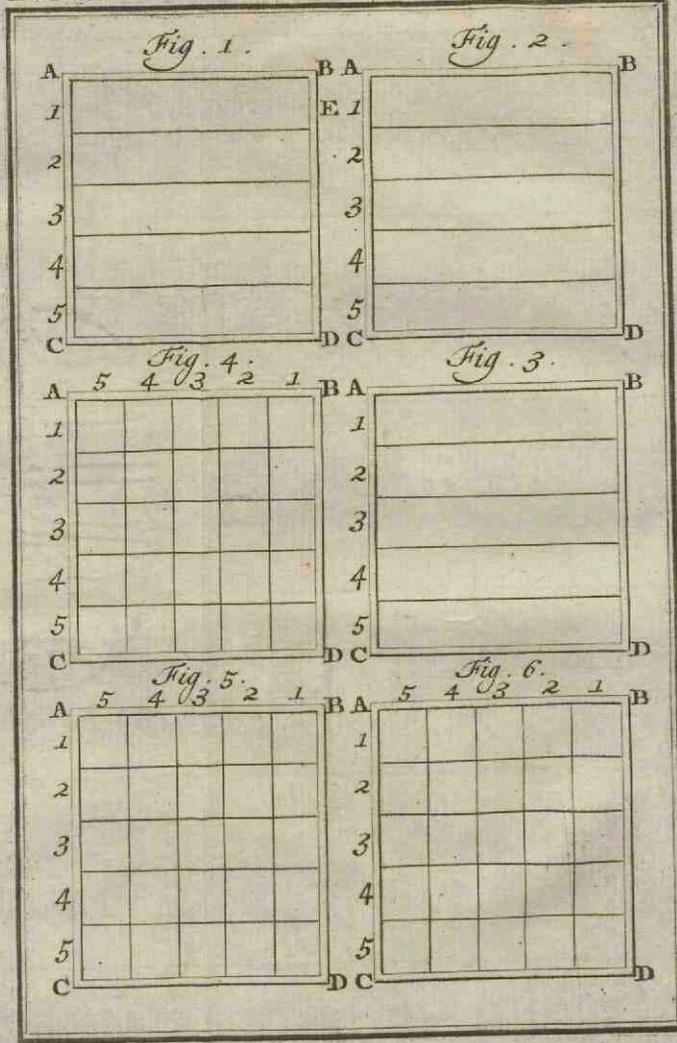 Fig. 1.
A B
1 E
2
3
4
5
C D
Fig. 2.
A B
1
2
3
4
5
C D
Fig. 4.
5 4 3 2 1
A B
1
2
3
4
5
C D
Fig. 3.
A B
1
2
3
4
5
C D
Fig. 5.
5 4 3 2 1
A B
1
2
3
4
5
C D
Fig. 6.
5 4 3 2 1
A B
1
2
3
4
5
C D